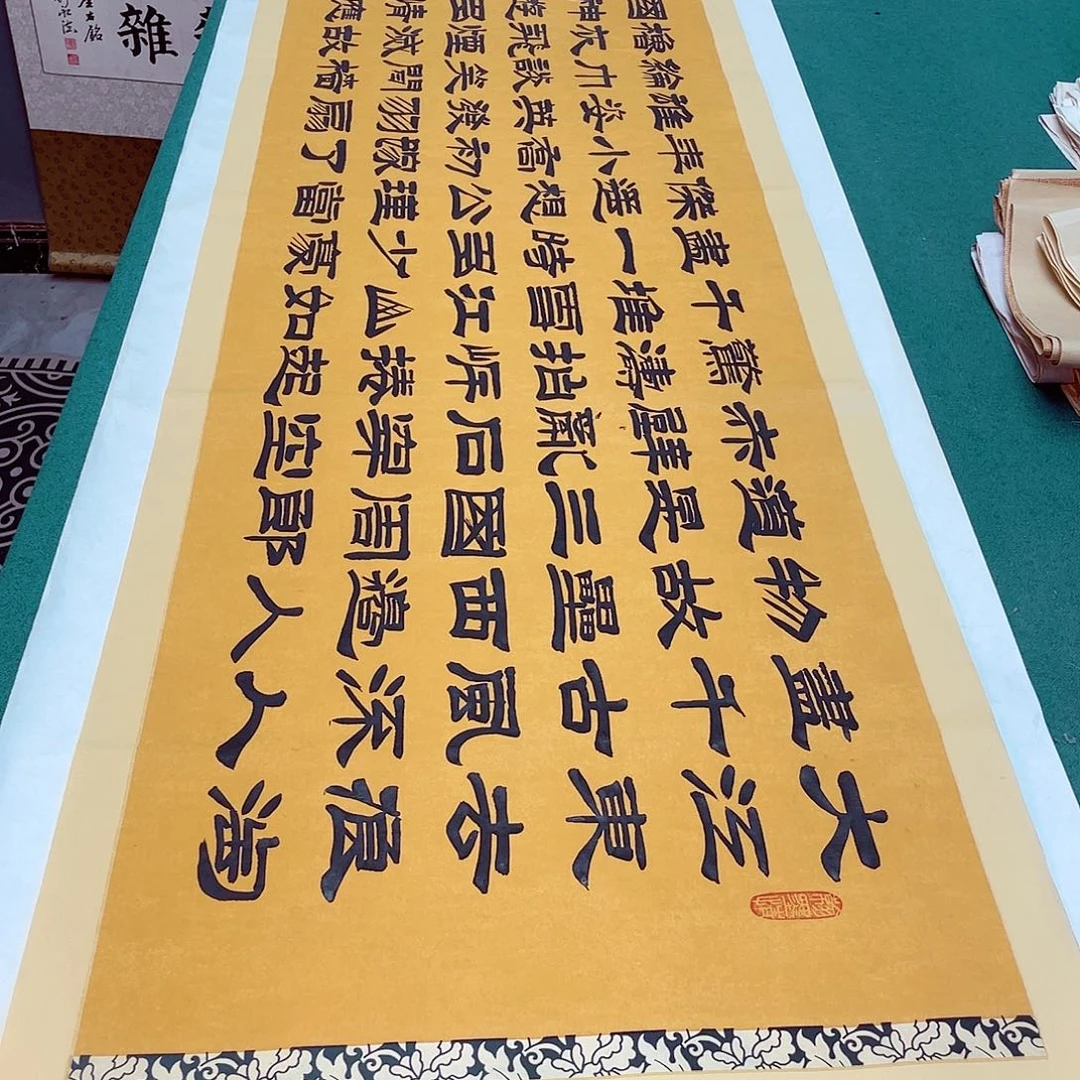 大江東去浪淘
盡千古風流人
物故壘西邊人
道是三國周郎
赤壁亂石穿空
驚濤拍岸捲起
千堆雪江山如
畫一時多少豪
傑遥想公瑾當
年小喬初嫁了
雄姿英發羽扇
綸巾談笑間檣
櫓灰飛煙滅故
國神遊多情應
雜